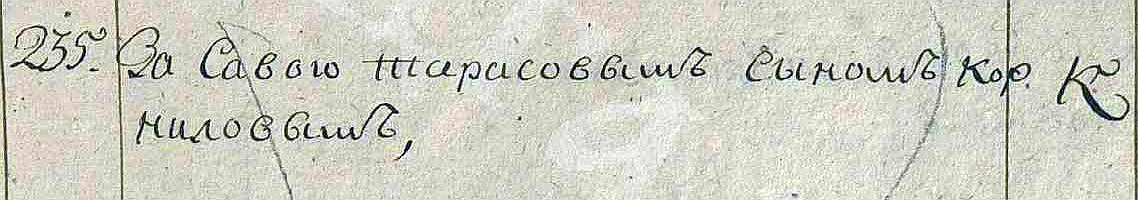 235. За Савою Тарасовымъ сыномъ Кор. К
ниловымъ,